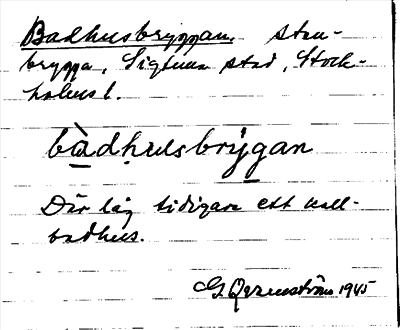 Badhusbryggan, sten-
brygga, Sigtuna stad, Stock-
holms l.
bàdhusbrỳgan
Där låg tidigare ett kall-
badhus.
G. 1945